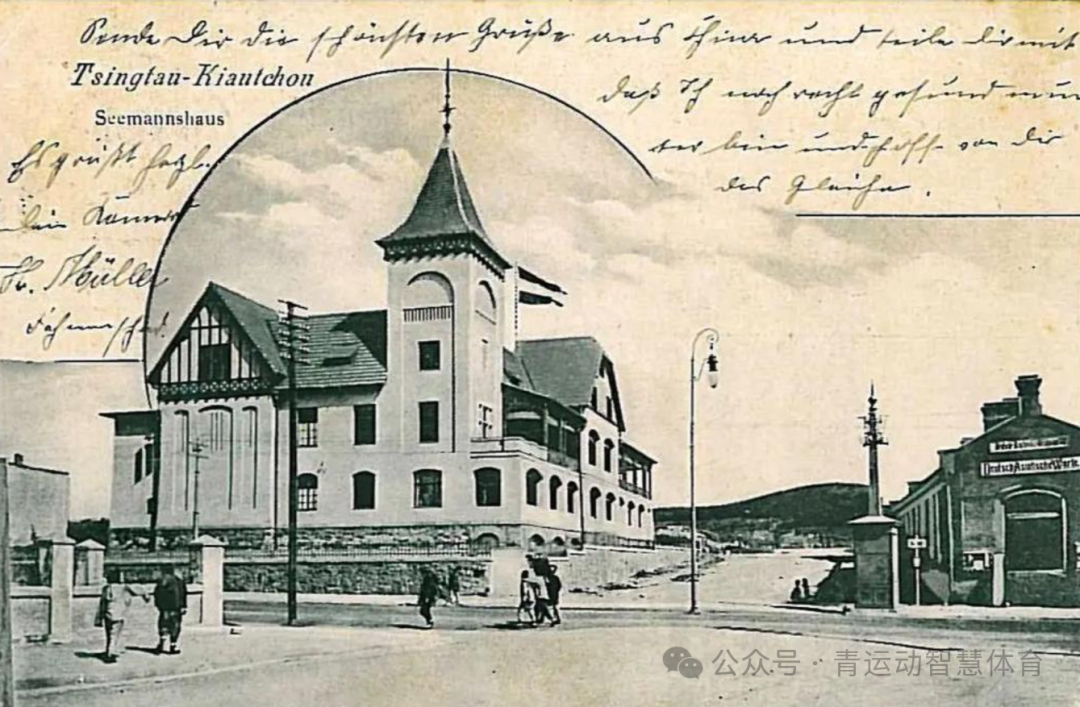 Sende Dir die schönsten Grüße aus China und teile dir mit
Tsingtau-Kiautchou
daß Ich noch recht gesund mun
Seemannshaus
ter bin und hoffe von dir
Es grüßt herzl.
das Gleiche.
dein
Fr. Müller
Deutsch Asiatische Werk
公众号 · 青运动智慧体育